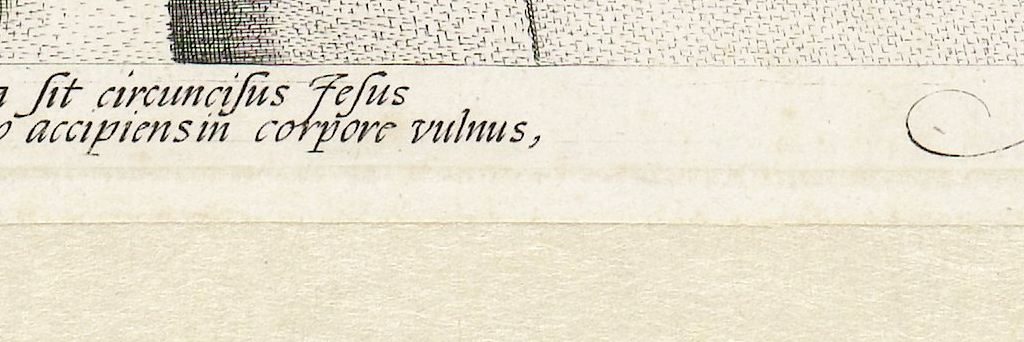 sit circuncisus Jesus
accipiens in corpore vulnus,